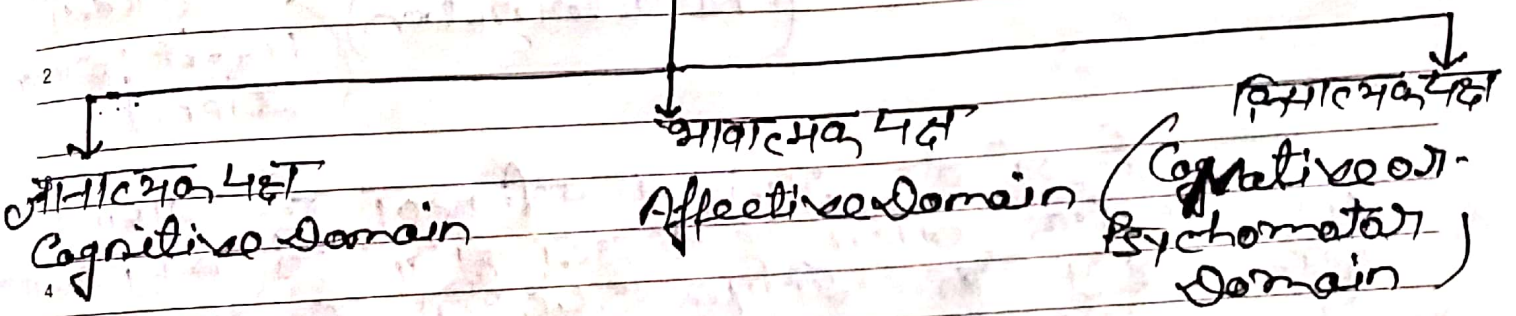 2
ज्ञानात्मक पक्ष
Cognitive Domain
भावात्मक पक्ष
Affective Domain
क्रियात्मक पक्ष
(Cognative or
Psychomotor
Domain)
4